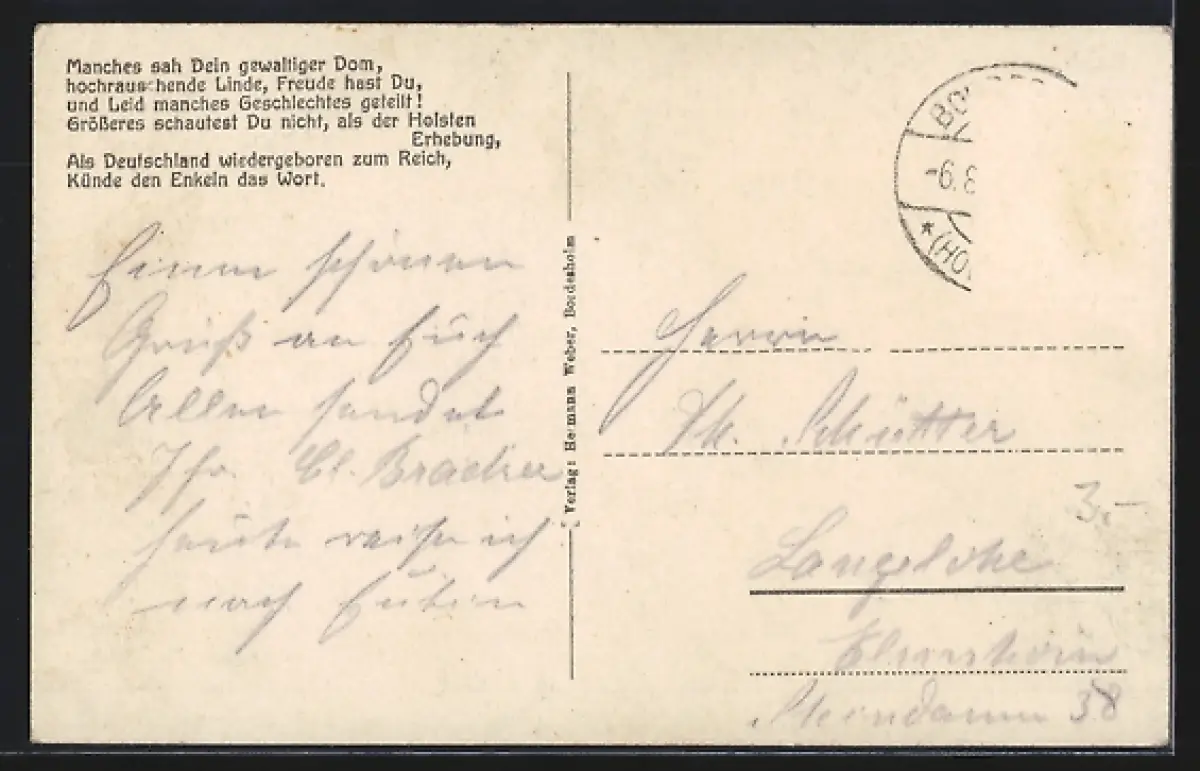 Manches sah Dein gewaltiger Dom,
hochrauschende Linde, Freude hast Du,
und Leid manches Geschlechtes geteilt!
Größeres schautest Du nicht, als der Holsten
Erhebung,
Als Deutschland wiedergeboren zum Reich,
Künde den Enkeln das Wort.
Einen schönen
Gruß an Euch
Allen sendet
Ihr Cl. Bracker
heute reise ich
nach Eutin
Verlag: Hermann Weber, Bordesholm
BO
-6.8
* (HO
Herrn
Th. Schütter
3.-
Langelohe
Elmshorn
38